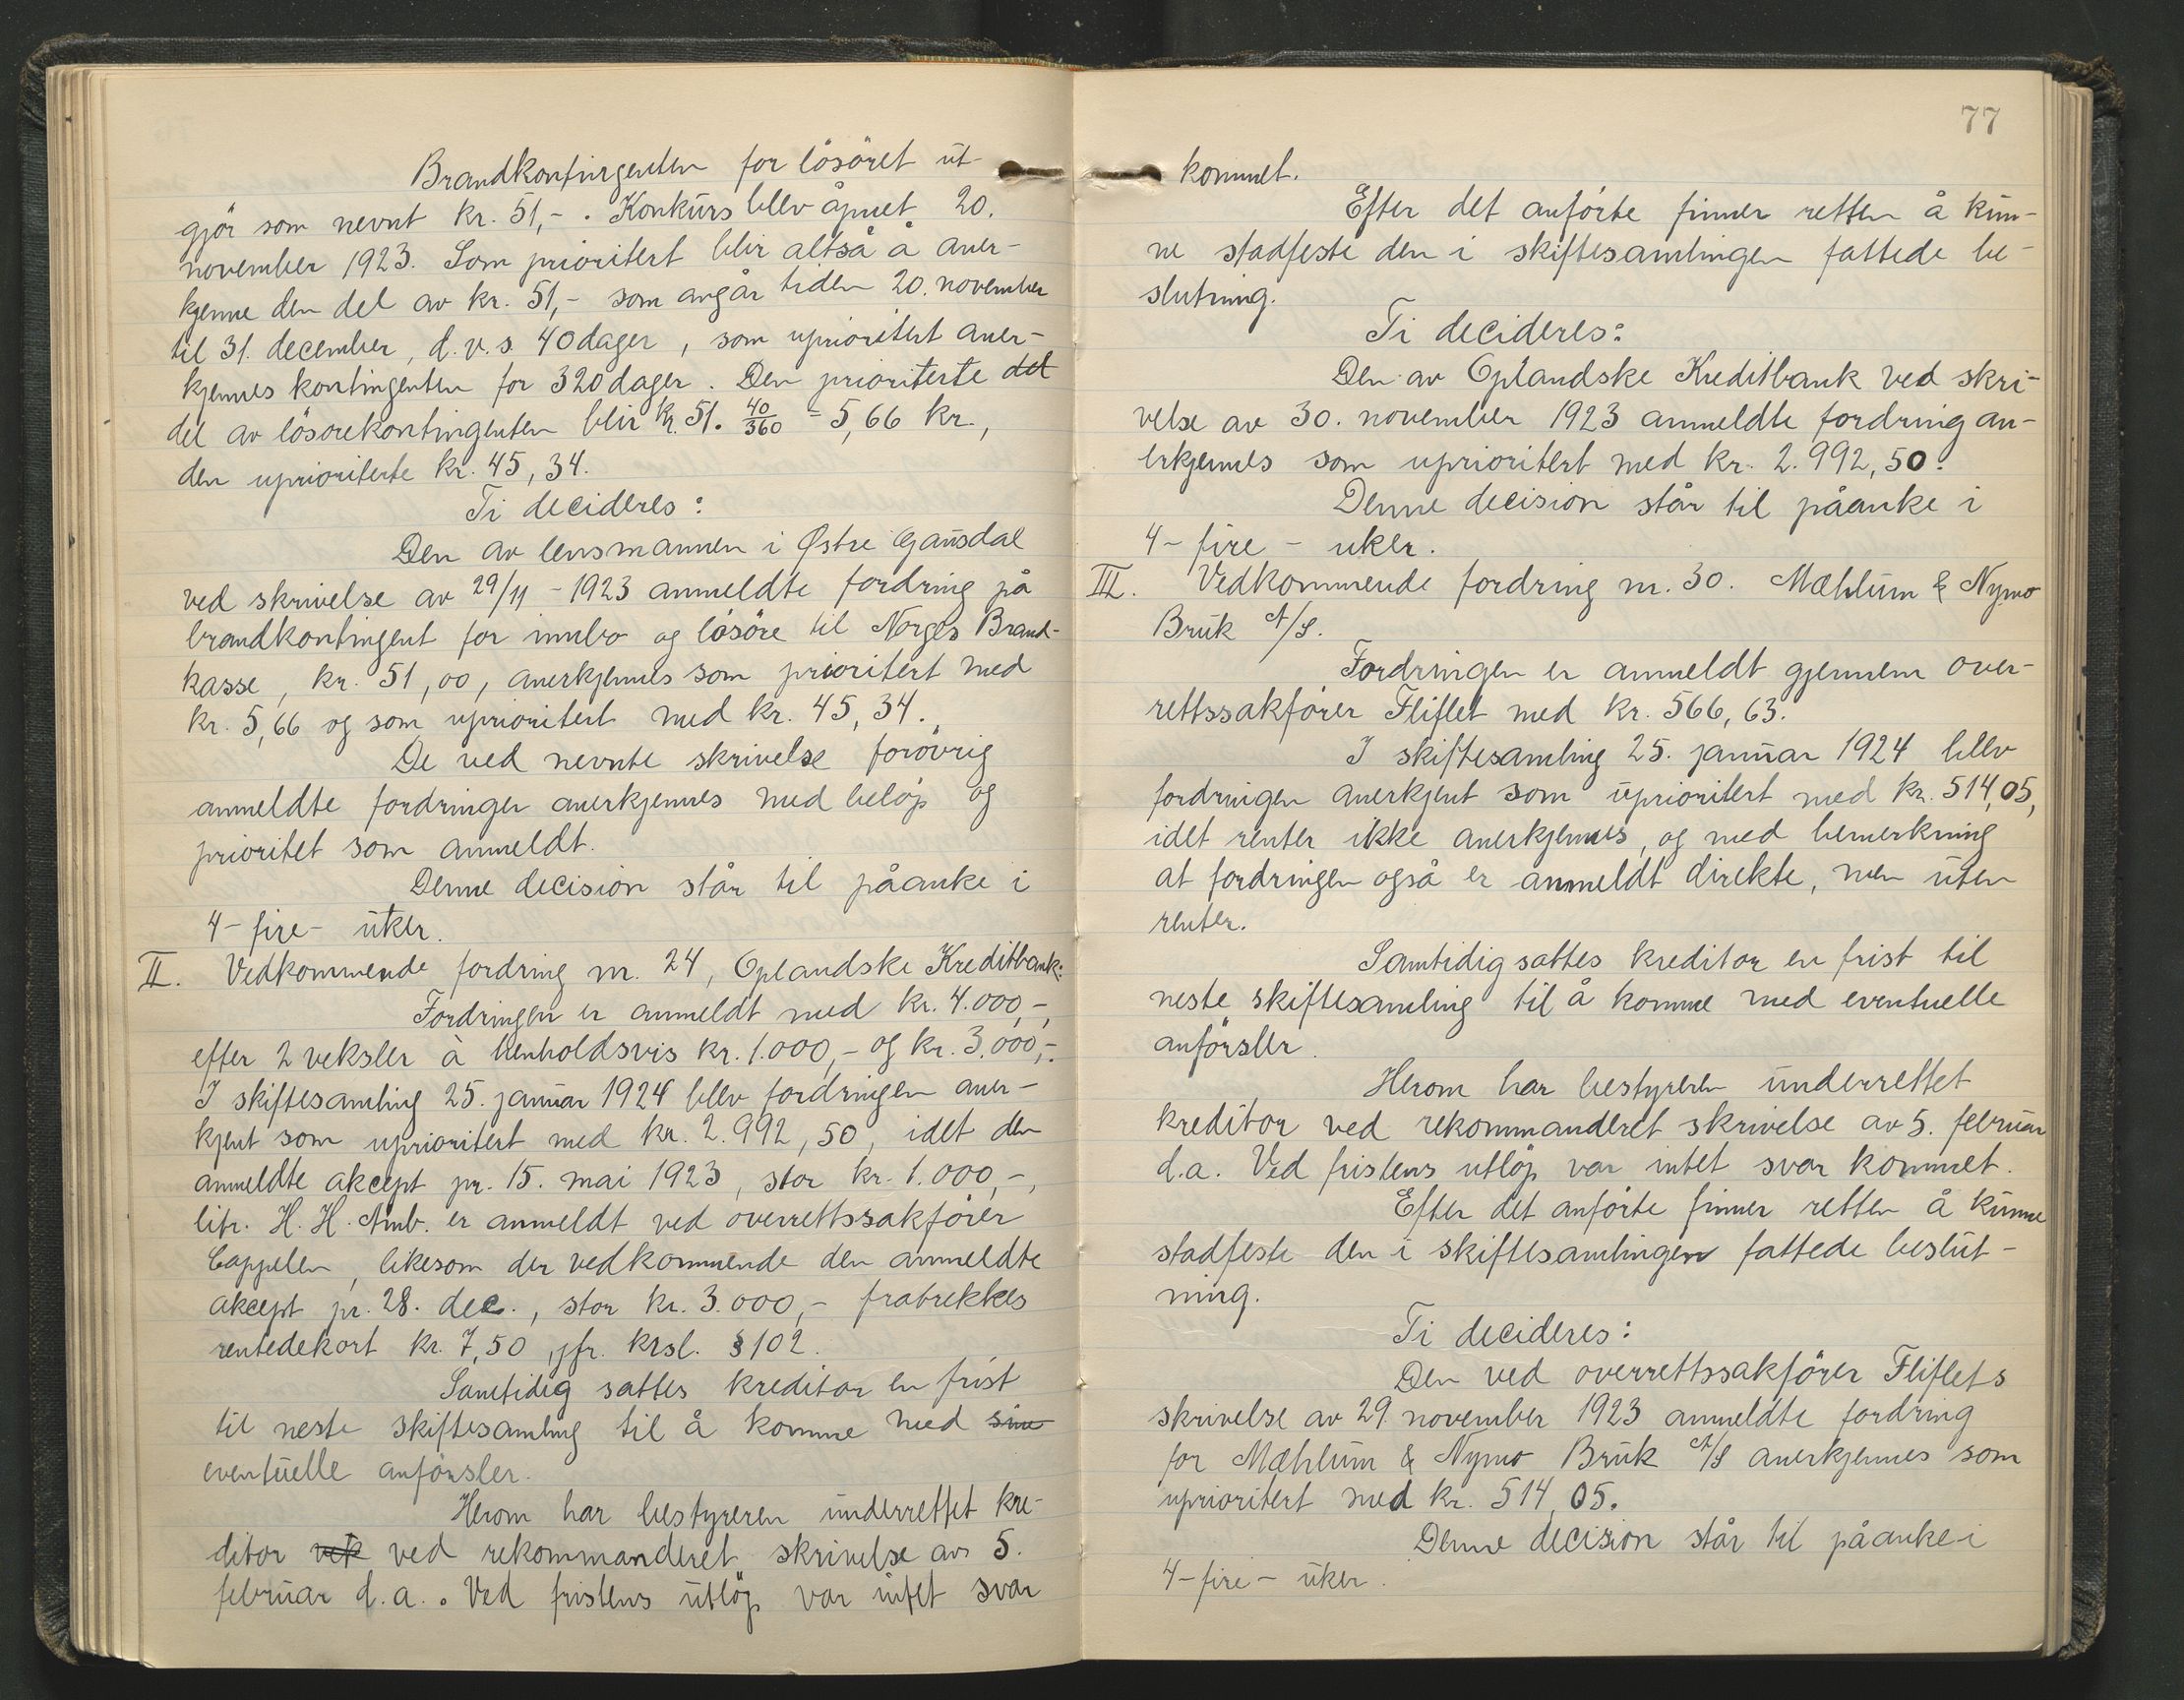 Brandkontingenten for lösöret ut-
gjör som nevnt kr. 51,- . Konkurs blev åpnet 20.
november 1923. Som prioritert blir altså å aner-
kjenne den del av kr. 51,- som angår tiden 20. november
til 31. december, d.v.s. 40 dager, som uprioritert aner-
kjennes kontingenten for 320 dager. Den prioriterte del
del av lösörekontingenten blir kr. 51. 40/360 = 5,66 kr.,
den uprioriterte kr. 45,34.
Ti decideres:
Den av lensmannen i Østre Gausdal
ved skrivelse av 29/11 - 1923 anmeldte fordring på
brandkontingent for innbo og lösöre til Norges Brand-
kasse, kr. 51,00, anerkjennes som prioritert med
kr. 5,66 og som uprioritert med kr. 45,34.
De ved nevnte skrivelse forövrig
anmeldte fordringer anerkjennes med belöp og
prioritet som anmeldt.
Denne decision står til påanke i
4- fire - uker.
II. Vedkommende fordring nr. 24, Oplandske Kreditbank:
Fordringen er anmeldt med kr. 4.000,-,
efter 2 veksler à henholdsvis kr. 1.000,- og kr. 3.000,-.
I skiftesamling 25. januar 1924 blev fordringen aner-
kjent som uprioritert med kr. 2.992,50, idet den
anmeldte akcept pr. 15. mai 1923, stor kr. 1.000,-,
litr. H. H. Amb. er anmeldt ved overrettssakförer
Cappelen, likesom der vedkommende den anmeldte
akcept pr. 28. dec., stor kr. 3.000,- fratrekkes
rentedekort kr. 7,50, jfr. krsl. § 102.
Samtidig sattes kreditor en frist
til neste skiftesamling til å komme med sine
eventuelle anförsler.
Herom har bestyreren underrettet kre-
ditor vek ved rekommanderet skrivelse av 5.
februar d.a.. Ved fristens utlöp var intet svar
77
kommet.
Efter det anförte finner retten å kun-
ne stadfeste den i skiftesamlingen fattede be-
slutning.
Ti decideres:
Den av Oplandske Kreditbank ved skri-
velse av 30. november 1923 anmeldte fordring an-
erkjennes som uprioritert med kr. 2.992,50.
Denne decision står til påanke i
4- fire - uker.
III. Vedkommende fordring nr. 30. Mæhlum & Nymo
Bruk A/S.
Fordringen er anmeldt gjennem over-
rettssakförer Fliflet med kr. 566,63.
I skiftesamling 25. januar 1924 blev
fordringen anerkjent som uprioritert med kr. 514,05,
idet renter ikke anerkjennes, og med bemerkning
at fordringen også er anmeldt direkte, men uten
renter.
Samtidig sattes kreditor en frist til
neste skiftesamling til å komme med eventuelle
anförsler.
Herom har bestyreren underrettet
kreditor ved rekommanderet skrivelse av 5. februar
d.a. Ved fristens utlöp var intet svar kommet.
Efter det anförte finner retten å kunne
stadfeste den i skiftesamlingen fattede beslut-
ning.
Ti decideres:
Den ved overrettssakförer Fliflets
skrivelse av 29. november 1923 anmeldte fordring
for Mæhlum & Nymo Bruk A/S anerkjennes som
uprioritert med kr. 514,05.
Denne decision står til påanke i
4- fire - uker.